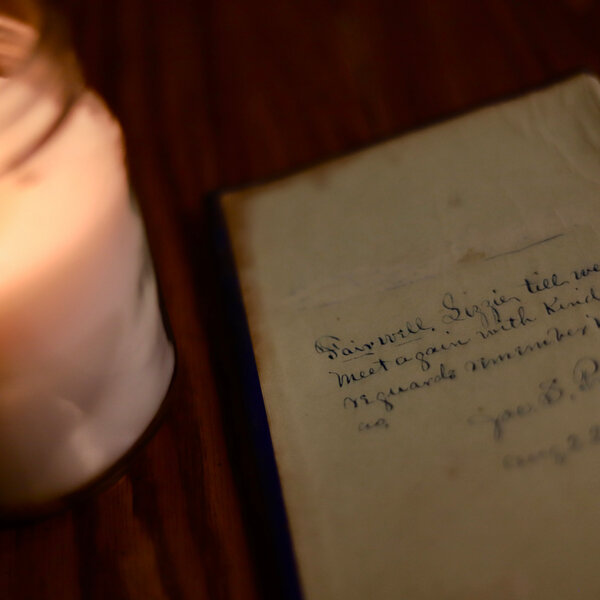 Fairwell, Lizzie, till we
Meet again with Kind
reguards remember
as
Geo. B.
Aug 22